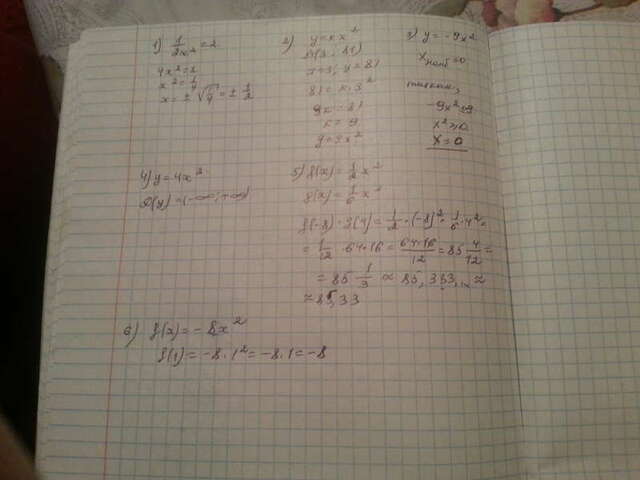 1) 1/2x² = 2
4x² = 1
x² = 1/4
x = ± √1/4 = ± 1/2
2) y = kx²
x = 3; y = 81
81 = k·3²
9k = 81
k = 9
y = 9x²
3) y = -9x²
xнаиб = 0
-9x²
x² ≥ 0
x = 0
4) y = 4x²
D(y) = (-∞; +∞)
5) f(x) = 1/2 x²
g(x) = 1/6 x²
f(-8) · g(4) = 1/2 · (-8)² · 1/6 · 4² =
= 1/12 · 64·16 = 64·16/12 = 85 4/12 =
= 85 1/3 ∝ 85,333... ≈
≈ 85,33
6) f(x) = -8x²
f(1) = -8·1² = -8·1 = -8